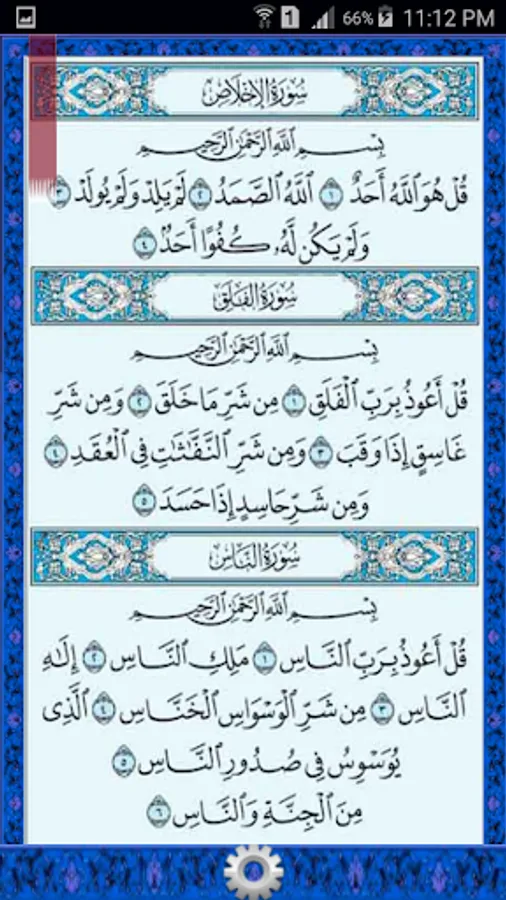 1 66% 11:12 PM
سُورَةُ الإِخْلَاصِ
بِسْمِ ٱللَّهِ ٱلرَّحْمَٰنِ ٱلرَّحِيمِ
قُلْ هُوَ ٱللَّهُ أَحَدٌ ١ ٱللَّهُ ٱلصَّمَدُ ٢ لَمْ يَلِدْ وَلَمْ يُولَدْ ٣
وَلَمْ يَكُن لَّهُۥ كُفُوًا أَحَدٌۢ ٤
سُورَةُ الفَلَقِ
بِسْمِ ٱللَّهِ ٱلرَّحْمَٰنِ ٱلرَّحِيمِ
قُلْ أَعُوذُ بِرَبِّ ٱلْفَلَقِ ١ مِن شَرِّ مَا خَلَقَ ٢ وَمِن شَرِّ
غَاسِقٍ إِذَا وَقَبَ ٣ وَمِن شَرِّ ٱلنَّفَّٰثَٰتِ فِى ٱلْعُقَدِ ٤
وَمِن شَرِّ حَاسِدٍ إِذَا حَسَدَ ٥
سُورَةُ النَّاسِ
بِسْمِ ٱللَّهِ ٱلرَّحْمَٰنِ ٱلرَّحِيمِ
قُلْ أَعُوذُ بِرَبِّ ٱلنَّاسِ ١ مَلِكِ ٱلنَّاسِ ٢ إِلَٰهِ
ٱلنَّاسِ ٣ مِن شَرِّ ٱلْوَسْوَاسِ ٱلْخَنَّاسِ ٤ ٱلَّذِى
يُوَسْوِسُ فِى صُدُورِ ٱلنَّاسِ ٥
مِنَ ٱلْجِنَّةِ وَٱلنَّاسِ ٦